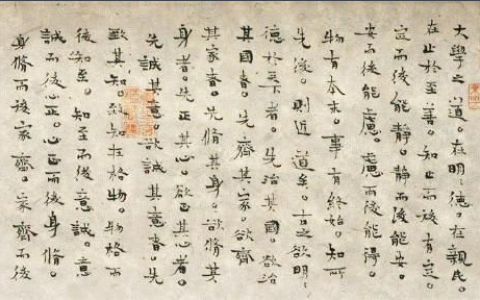 大學之道。在明〻德。在親民。
在止於至善。知止而後有定。
定而後能靜。靜而後能安。
安而後能慮。慮而後能得。
物有本末。事有終始。知所
先後。則近道矣。古之欲明〻
德於天下者。先治其國。欲治
其國者。先齊其家。欲齊
其家者。先脩其身。欲脩其
身者。先正其心。欲正其心者。
先誠其意。欲誠其意者。先
致其知。致知在格物。物格而
後知至。知至而後意誠。意
誠而後心正。心正而後身脩。
身脩而後家齊。家齊而後